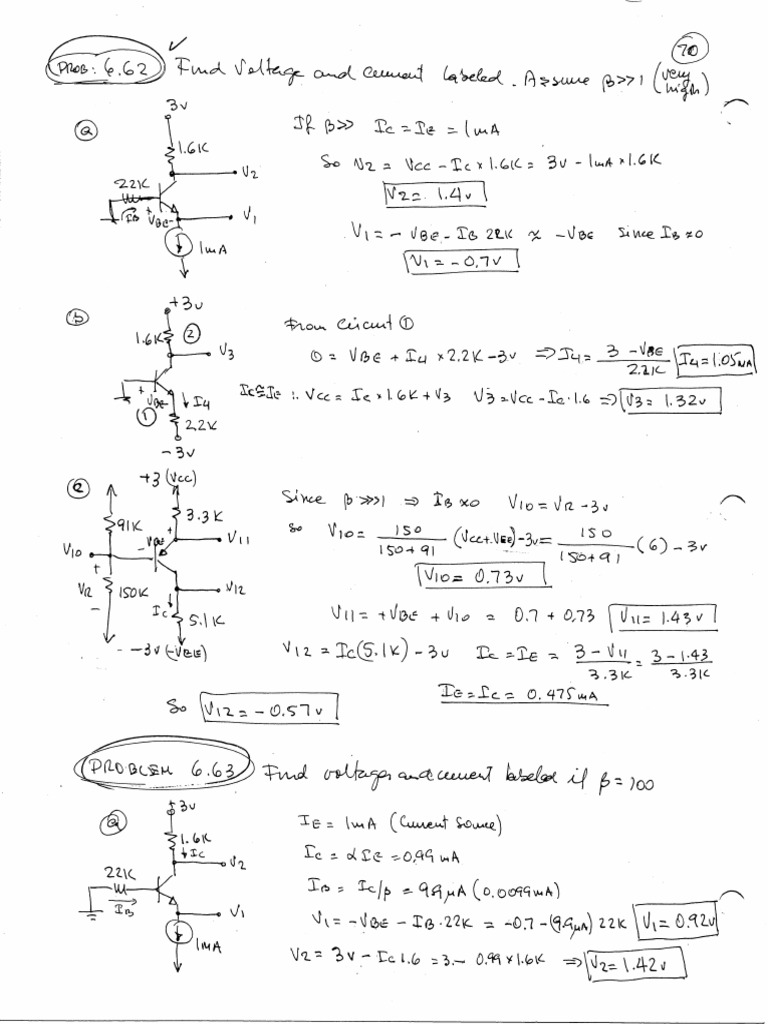 70
PROB: 6.62 Find Voltage and current labeled. Assume β>>1 (very high)
a
3v
1.6K
V2
22K
IB
+ VBE -
V1
1mA
If β>> Ic = IE = 1mA
So V2 = Vcc - Ic x 1.6K = 3v - 1mA x 1.6K
V2 = 1.4v
V1 = - VBE - IB 22K ≈ -VBE Since IB≈0
V1 = -0.7v
b
+3v
1.6K
2
V3
+ VBE -
1
I4
2.2K
-3v
From Circuit 1
0 = VBE + I4 x 2.2K - 3v => I4 = 3 - VBE / 2.2K I4 = 1.05mA
Ic≅IE ∴ Vcc = Ic x 1.6K + V3 V3 = Vcc - Ic·1.6 => V3 = 1.32v
c
+3 (Vcc)
91K
3.3K
+
VBE
-
V11
V10
+
VR
-
150K
V12
Ic
5.1K
-3v (-VEE)
Since β>>>1 => IB≈0 V10 = VR - 3v
So V10 = 150 / 150+91 (Vcc+VEE) - 3v = 150 / 150+91 (6) - 3v
V10 = 0.73v
V11 = +VBE + V10 = 0.7 + 0.73 V11 = 1.43v
V12 = Ic(5.1K) - 3v Ic = IE = 3 - V11 / 3.3K = 3 - 1.43 / 3.3K
IE = Ic = 0.475mA
So V12 = -0.57v
PROBLEM 6.63 Find voltages and current labeled if β = 100
a
+3v
1.6K
Ic
V2
22K
IB
V1
1mA
IE = 1mA (Current Source)
Ic = αIE = 0.99mA
IB = Ic/β = 9.9μA (0.0099mA)
V1 = -VBE - IB·22K = -0.7 - (9.9μA) 22K V1 = 0.92v
V2 = 3v - Ic 1.6 = 3 - 0.99 x 1.6K => V2 = 1.42v